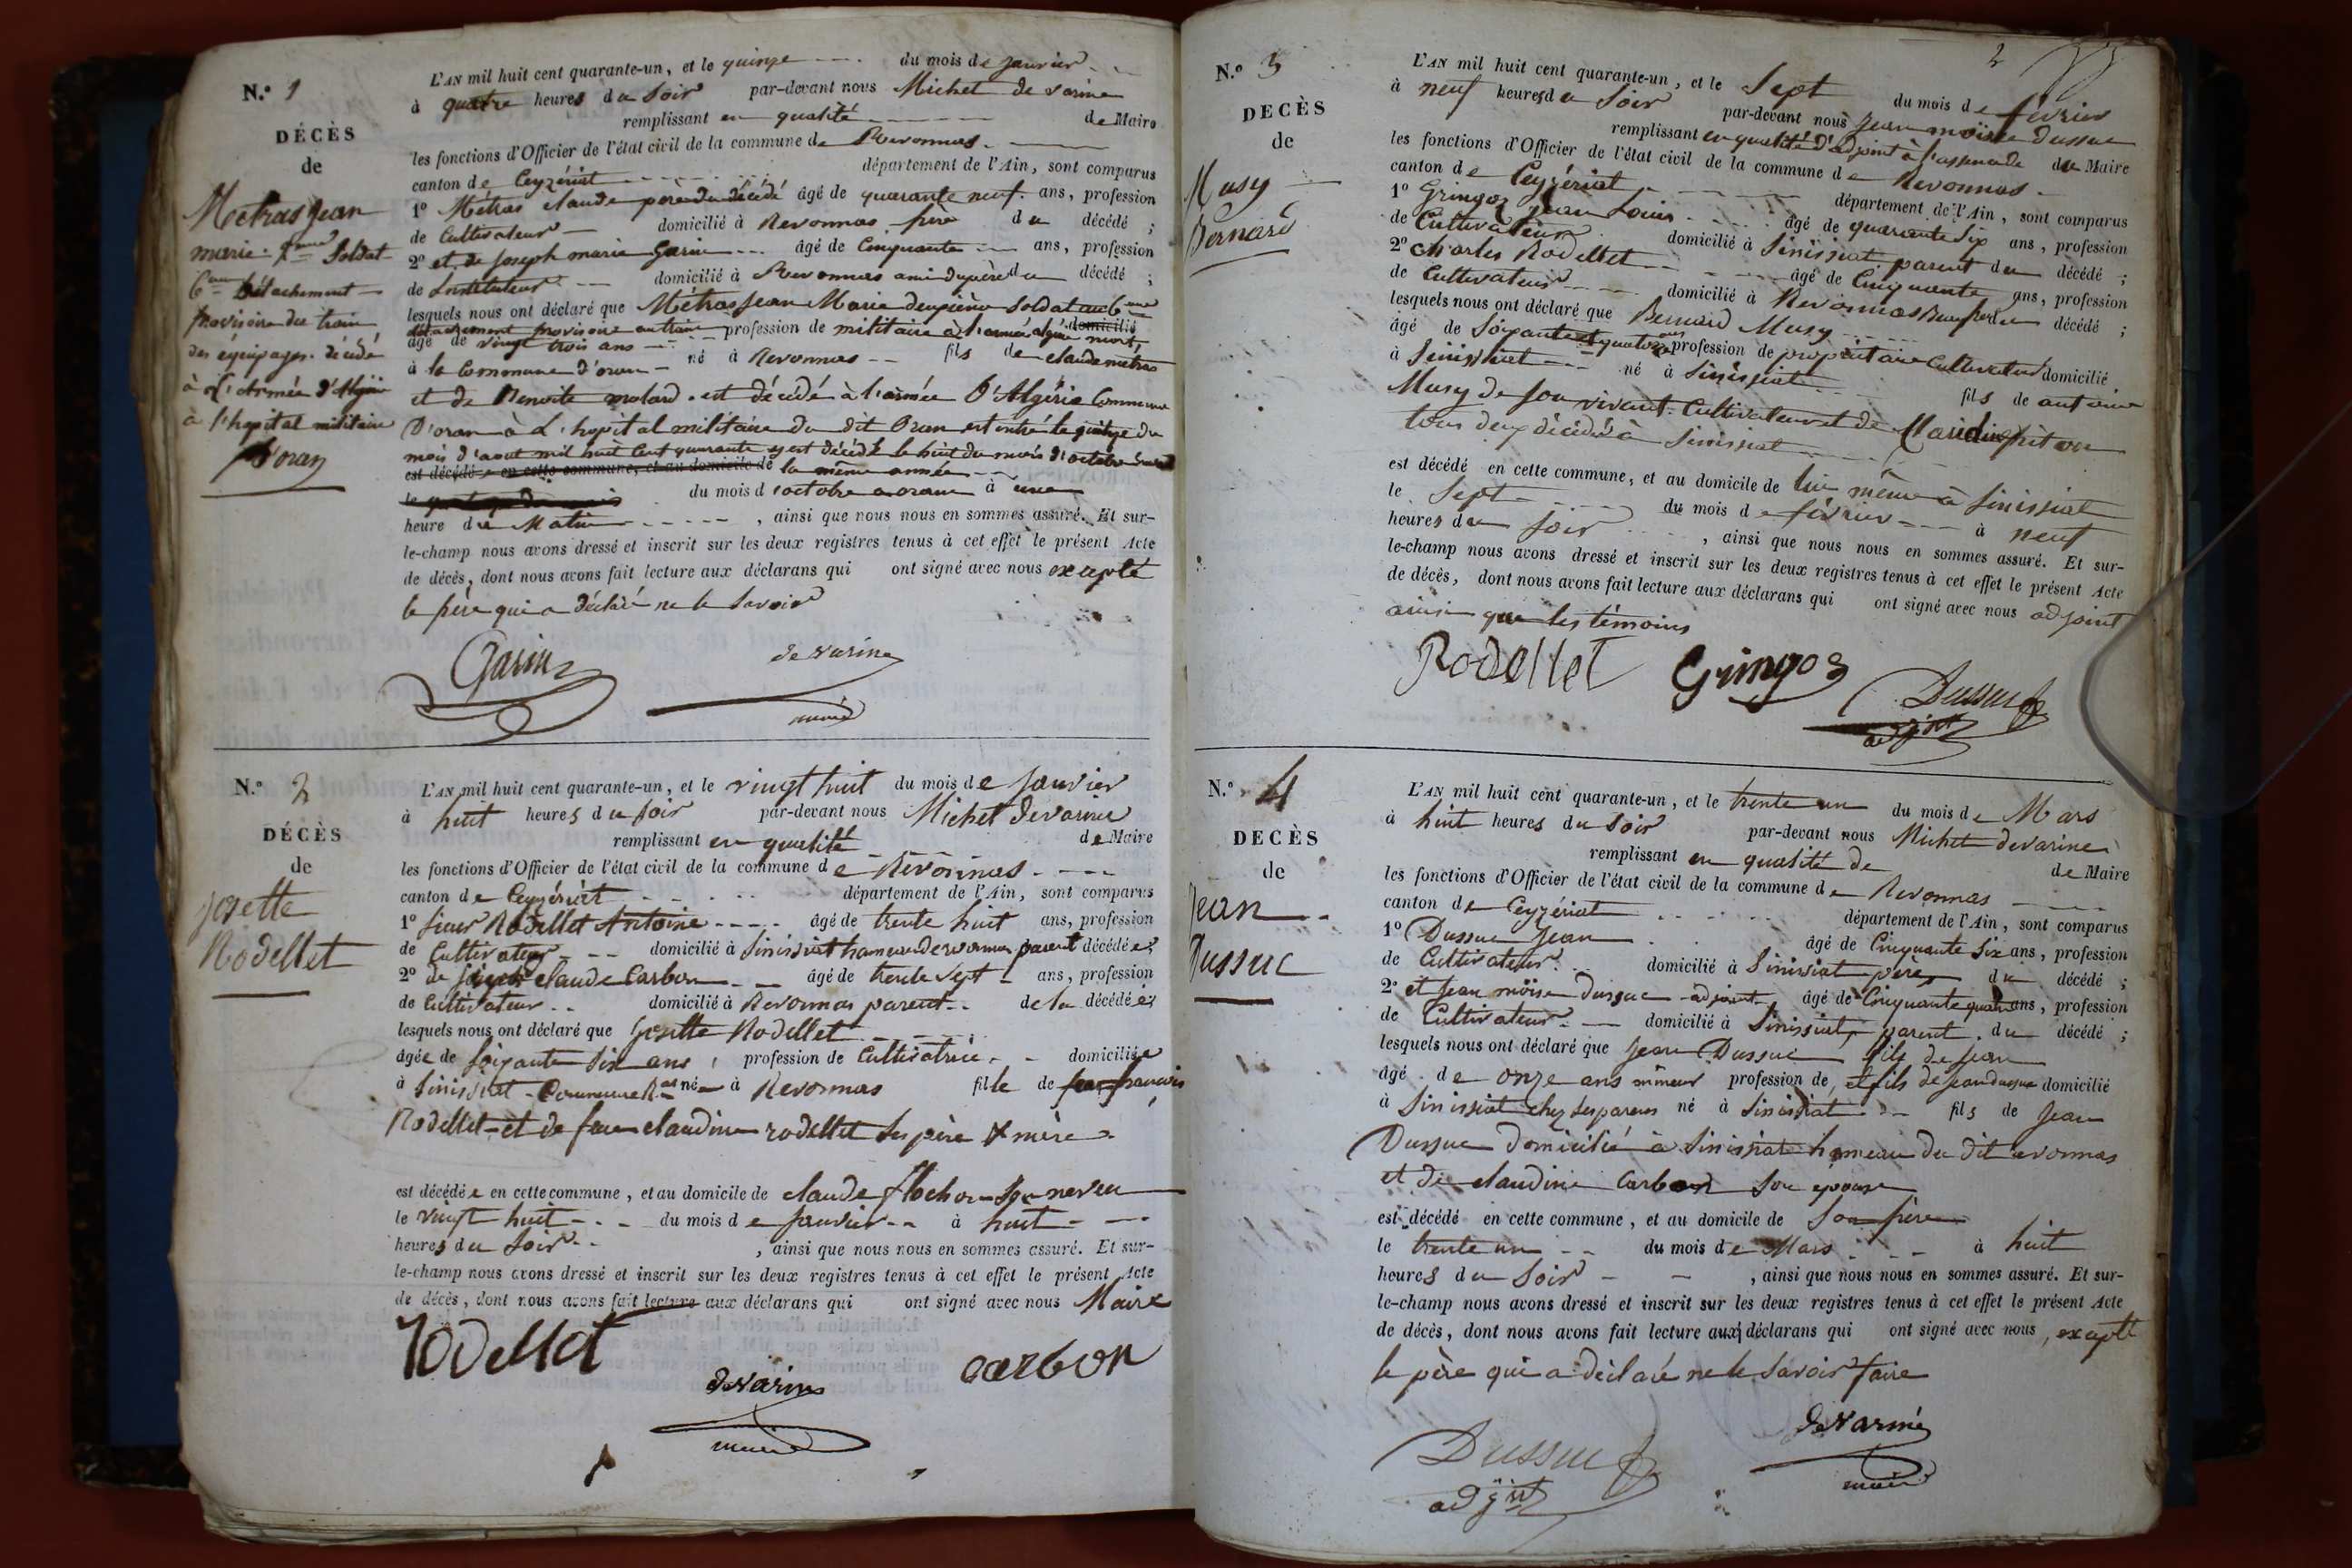 N.º 1
DÉCÈS
de
Métras Jean
marie 2me Soldat
6me Détachement
Provisoire du train
des équipages décédé
à l'Armée d'Algérie
à l'hopital militaire
D'oran
L'AN mil huit cent quarante-un, et le quinze du mois de Janvier
à quatre heures du Soir par-devant nous Michel de varine
remplissant en qualité de Maire
les fonctions d'Officier de l'état civil de la commune de Revonnas
canton de Ceyzériat département de l'Ain, sont comparus
1º Métras claude père du décédé âgé de quarante neuf ans, profession
de Cultivateur domicilié à Revonnas père du décédé ;
2º et de Joseph marie Garin âgé de Cinquante ans, profession
de Instituteur domicilié à Revonnas ami du père du décédé ;
lesquels nous ont déclaré que Métras Jean Marie deuxième Soldat au 6me
détachement provisoire au train profession de militaire à l'armée algérie mort, domicilié
âgé de vingt trois ans né à Revonnas fils de claude metras
à la Commune d'oran
et de Benoite molard est décédé à l'armée D'Algérie Commune
D'oran à L'hopital militaire du dit Oran est entré le quinze du
mois d'aout mil huit Cent quarante y est décédé le huit du mois d'octobre
est décédé en cette commune, et au domicile de la même année
le du mois d'octobre a oran à une
heure du Matin , ainsi que nous nous en sommes assuré. Et sur-
le-champ nous avons dressé et inscrit sur les deux registres tenus à cet effet le présent Acte
de décès, dont nous avons fait lecture aux déclarans qui ont signé avec nous excepté
le père qui a déclaré ne le Savoir
Garin devarine
maire
N.º 2
DÉCÈS
de
Josette
Rodellet
L'AN mil huit cent quarante-un, et le vingt huit du mois de Janvier
à huit heures du soir par-devant nous Michel Devarine
remplissant en qualité de Maire
les fonctions d'Officier de l'état civil de la commune de Revonnas
canton de Ceyzériat département de l'Ain, sont comparus
1º sieur Rodellet Antoine âgé de trente huit ans, profession
de Cultivateur domicilié à Sinissiat hameau de revonnas parent décédée ;
2º de claude Carbon âgé de trente Sept ans, profession
de Cultivateur domicilié à Revonnas parent de la décédée ;
lesquels nous ont déclaré que Josette Rodellet
âgée de soixante six ans, profession de Cultivatrice domiciliée
à Sinissiat Commune née à Revonnas fille de feu françois
Rodellet et de feue claudine rodellet Ses père & mère
est décédée en cette commune, et au domicile de claude flochon son neveu
le vingt huit du mois de Janvier à huit
heures du Soir , ainsi que nous nous en sommes assuré. Et sur-
le-champ nous avons dressé et inscrit sur les deux registres tenus à cet effet le présent Acte
de décès, dont nous avons fait lecture aux déclarans qui ont signé avec nous Maire
Rodellet devarine carbon
maire
2
N.º 3
DÉCÈS
de
Musy
Bernard
L'AN mil huit cent quarante-un, et le Sept du mois de février
à neuf heures du Soir par-devant nous Jean moïse dussuc
remplissant en qualité d'adjoint à l'absence de du Maire
les fonctions d'Officier de l'état civil de la commune de Revonnas
canton de Ceyzériat département de l'Ain, sont comparus
1º Gringoz Jean Louis âgé de quarante Six ans, profession
de Cultivateur domicilié à Sinissiat parent du décédé ;
2º charles Rodellet âgé de Cinquante ans, profession
de Cultivateur domicilié à Revonnas Beaufrère du décédé ;
lesquels nous ont déclaré que Bernard Musy
âgé de Soixante et quatorze ans profession de propriétaire Cultivateur domicilié
à Sinissiat né à Sinissiat fils de antoine
Musy de son vivant Cultivateur et de Claudine
tous deux décédés à Sinissiat
est décédé en cette commune, et au domicile de lui même à Sinissiat
le Sept du mois de février à neuf
heures du soir , ainsi que nous nous en sommes assuré. Et sur-
le-champ nous avons dressé et inscrit sur les deux registres tenus à cet effet le présent Acte
de décès, dont nous avons fait lecture aux déclarans qui ont signé avec nous adjoint
ainsi que les témoins
Rodellet Gringoz Dussuc
adjoint
N.º 4
DECÈS
de
Jean
Dussuc
L'AN mil huit cent quarante-un, et le trente un du mois de Mars
à huit heures du Soir par-devant nous Michel devarine
remplissant en qualité de de Maire
les fonctions d'Officier de l'état civil de la commune de Revonnas
canton de Ceyzériat département de l'Ain, sont comparus
1º Dussuc Jean âgé de Cinquante Six ans, profession
de Cultivateur domicilié à Sinissiat père du décédé ;
2º et Jean moïse Dussuc adjoint âgé de Cinquante quatre ans, profession
de Cultivateur domicilié à Sinissiat parent du décédé ;
lesquels nous ont déclaré que Jean Dussuc fils de Jean
âgé de onze ans mineur profession de et fils de jean dussuc domicilié
à Sinissiat chez ses parens né à Sinissiat fils de Jean
Dussuc domicilié à Sinissiat hameau du dit revonnas
et de claudine Carbon son epouse
est décédé en cette commune, et au domicile de Son père
le trente un du mois de Mars à huit
heures du Soir , ainsi que nous nous en sommes assuré. Et sur-
le-champ nous avons dressé et inscrit sur les deux registres tenus à cet effet le présent Acte
de décès, dont nous avons fait lecture aux déclarans qui ont signé avec nous, excepté
le père qui a déclaré ne le Savoir faire
Dussuc devarine
adjoint maire